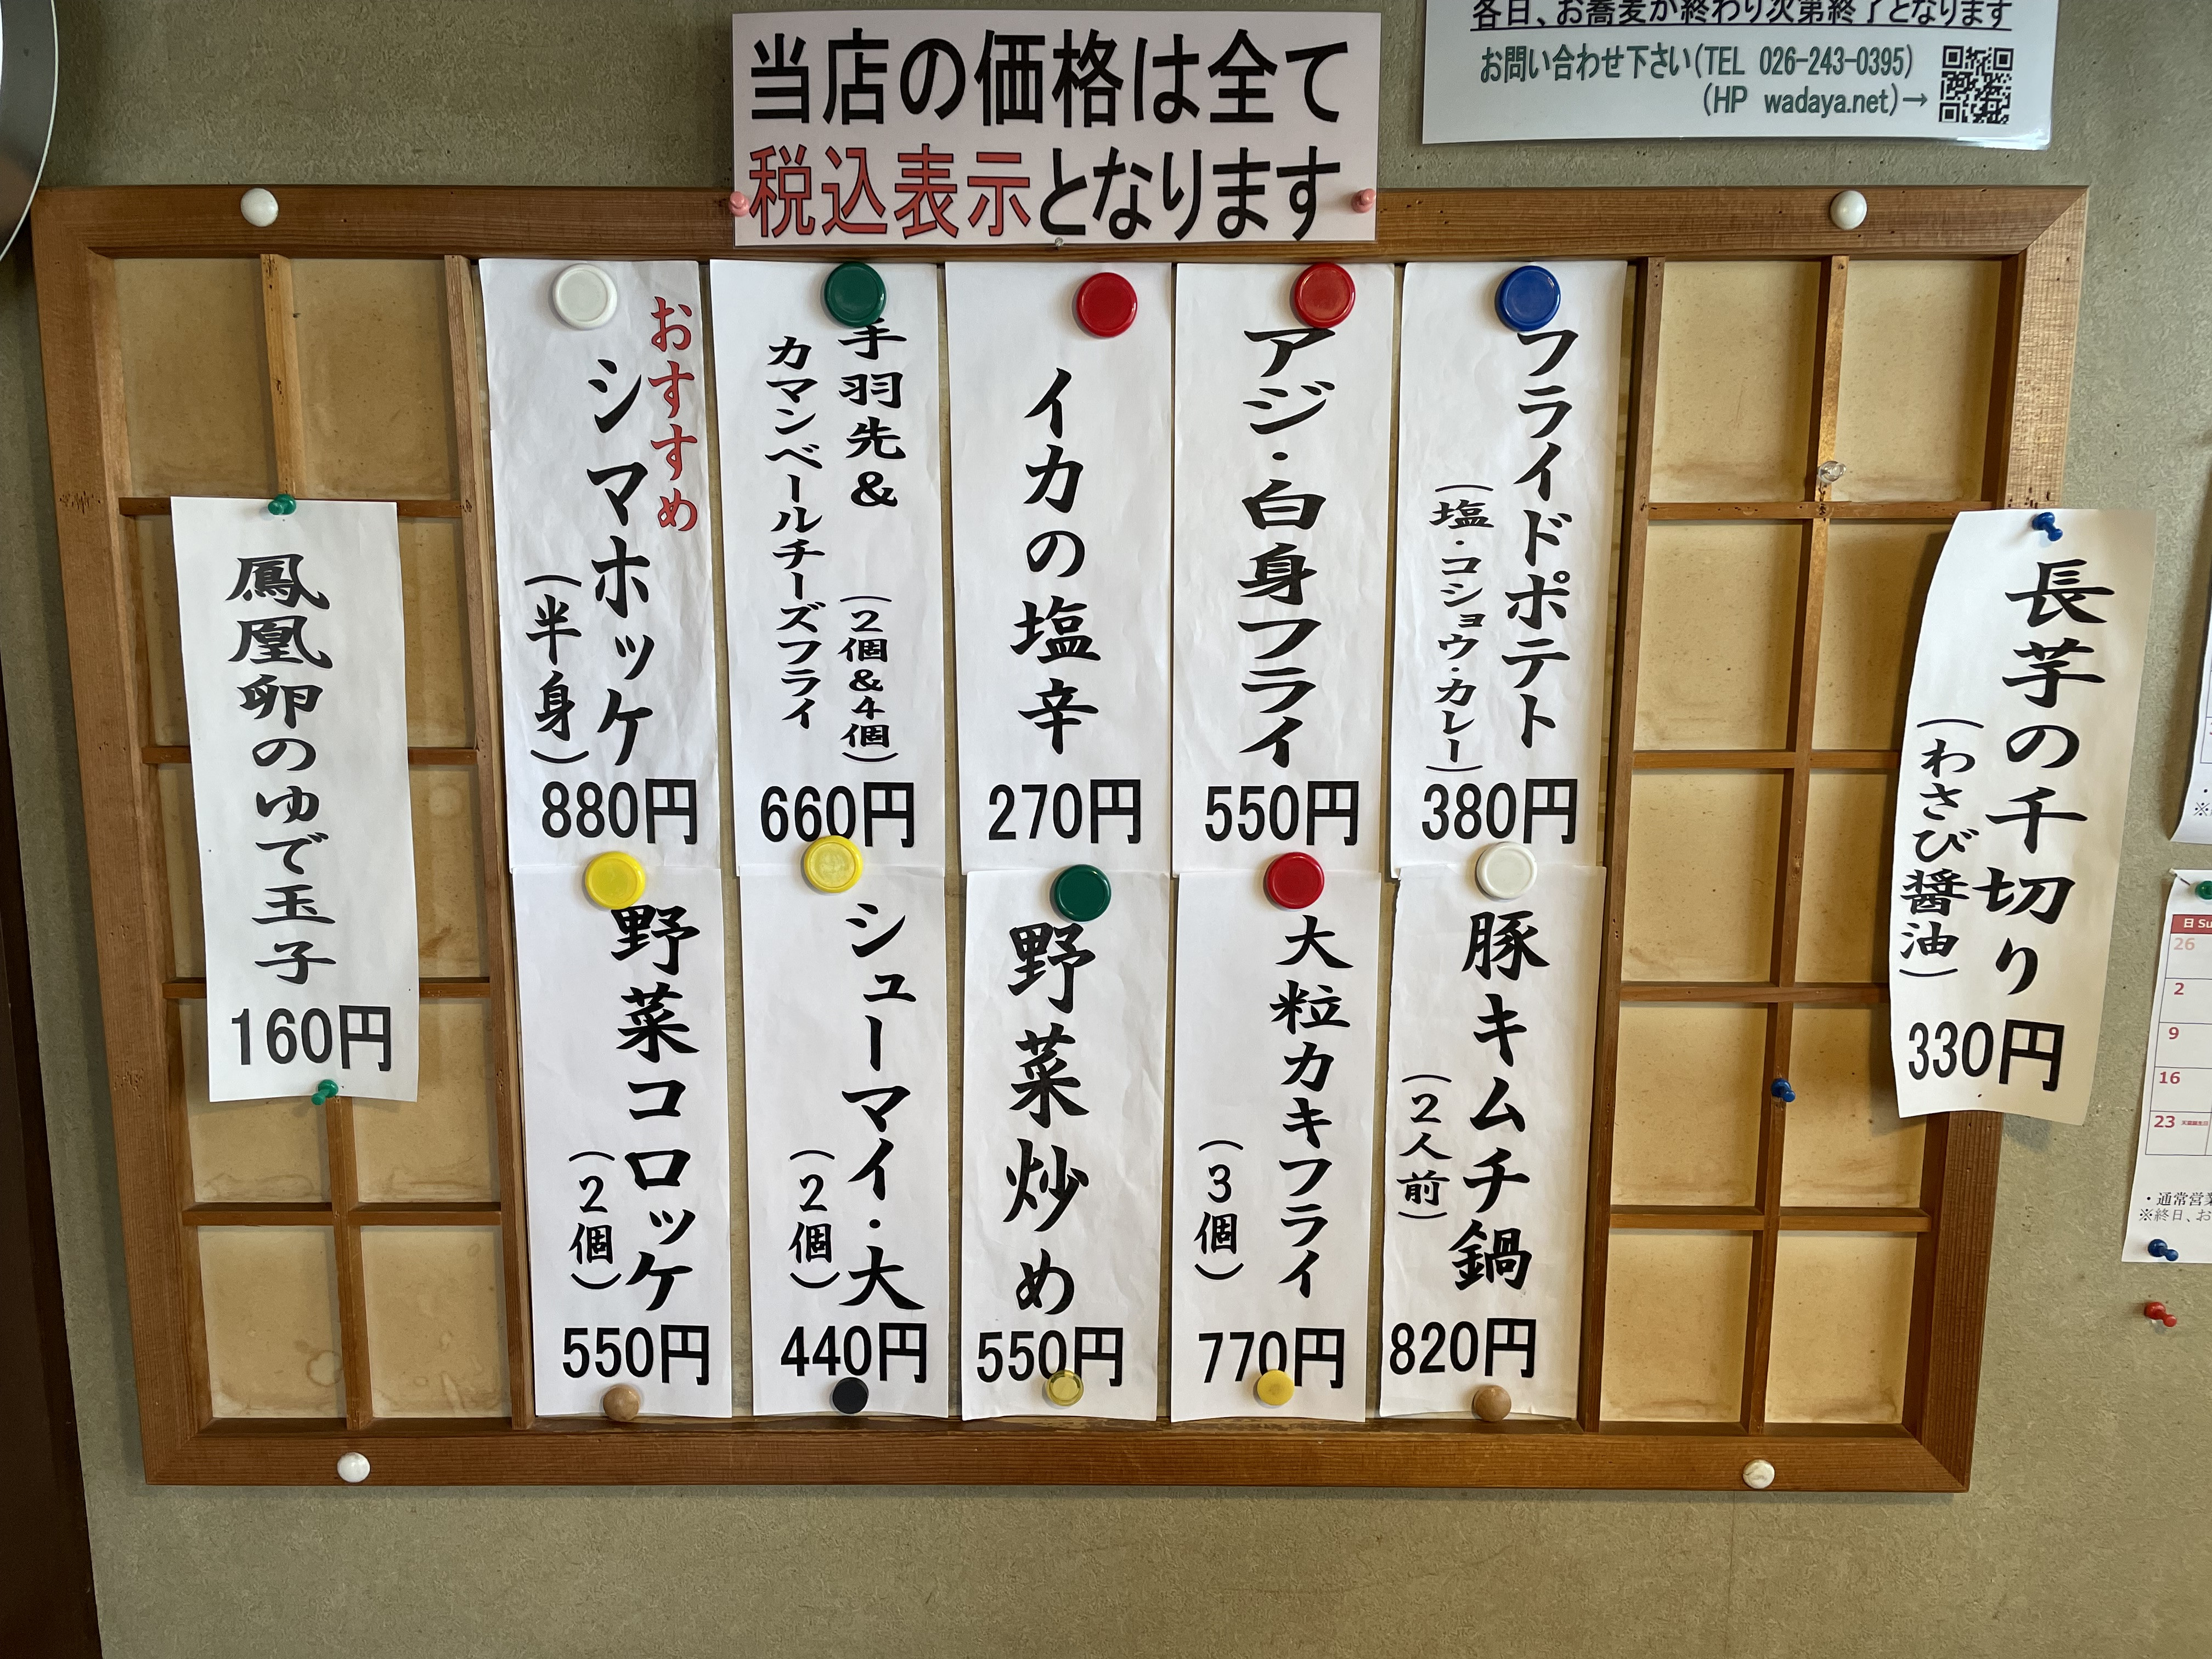 各日、お蕎麦が終わり次第終了となります
お問い合わせ下さい(TEL 026-243-0395)
(HP wadaya.net)→
当店の価格は全て
税込表示となります
長芋の千切り
(わさび醤油)
330円
フライドポテト
(塩・コショウ・カレー)
380円
アジ・白身フライ
550円
イカの塩辛
270円
手羽先&
(2個&4個)
カマンベールチーズフライ
660円
おすすめ
シマホッケ
(半身)
880円
豚キムチ鍋
(2人前)
820円
大粒カキフライ
(3個)
770円
野菜炒め
550円
シューマイ・大
(2個)
440円
野菜コロッケ
(2個)
550円
鳳凰卵のゆで玉子
160円
日 Su
26
2
9
16
23
・通常営業
※終日、お